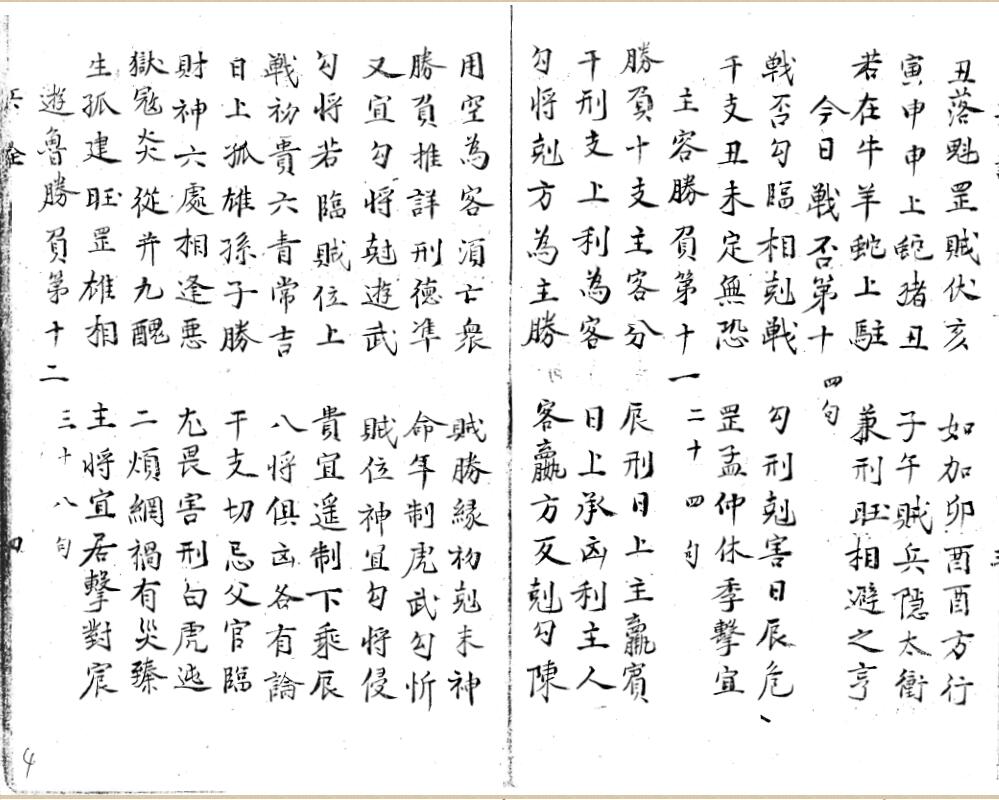 丑落魁罡賊伏亥　如加卯酉酉方行
寅申申上蛇猪丑　子午賊兵隠太衝
若在牛羊蛇上駐　兼刑旺相避之亨
今日戰否第十　四句
戰否勾臨相剋戰　勾刑剋害日辰危
干支丑未定無恐　罡孟仲休季擊宜
主客勝負第十一　二十四句
勝負十支主客分　辰刑日上主贏賓
干刑支上利為客　日上承凶利主人
勾将剋方為主勝　客贏方反剋勾陳
用空為客須亡衆　賊勝緣初剋末神
勝負推詳刑德準　命年制虎武勾忻
又宜勾将剋遊武　賊位神宜勾将侵
勾将若臨賊位上　貴宜遥制下乘辰
戰初貴六青常吉　八将俱凶各有論
日上孤雄孫子勝　干支切忌父官臨
財神六處相逢悪　尤畏害刑白虎迍
獄冦炎從并九醜　二煩網禍有災臻
生孤建旺罡雄相　主将宜居擊對宸
遊魯勝負第十二　三十八句
四
4